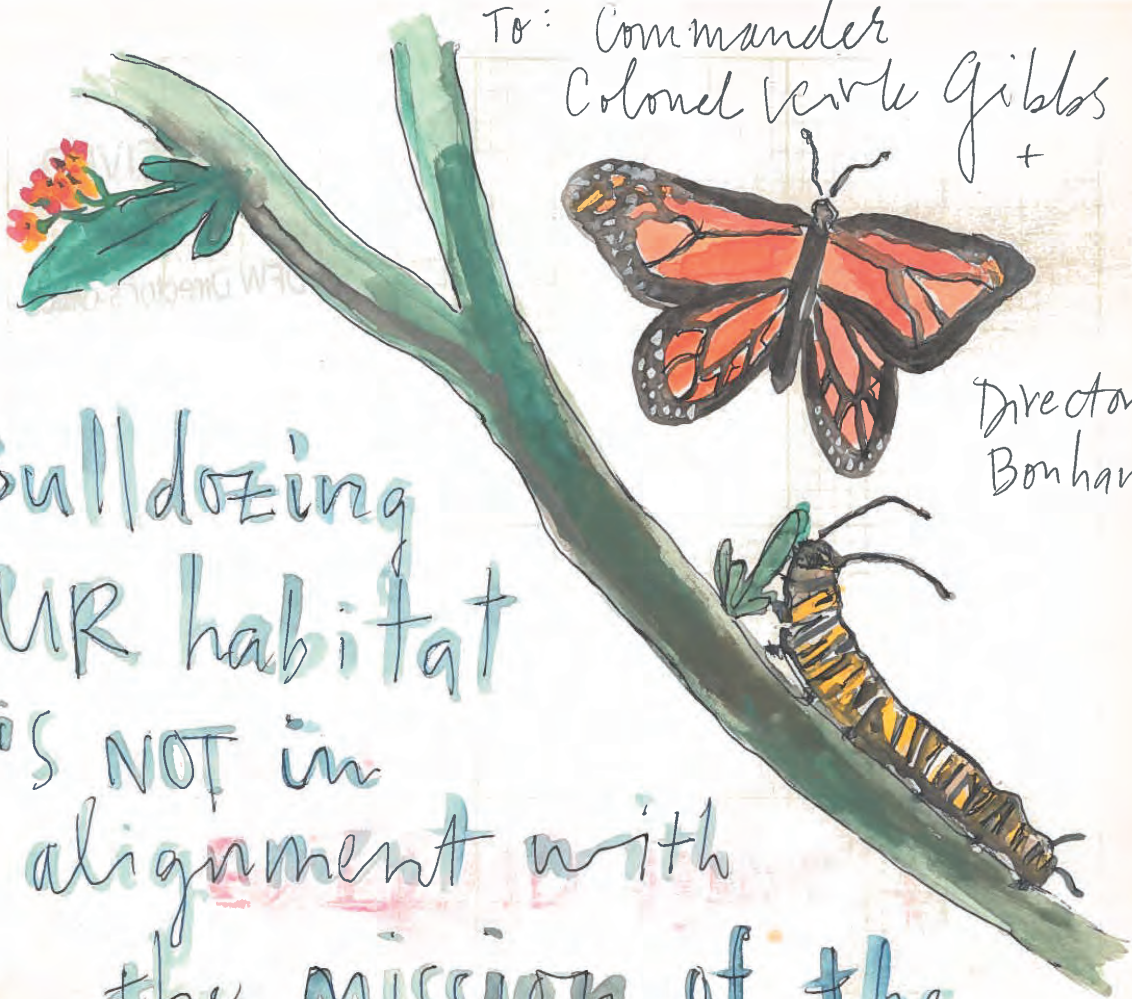 To: Commander
Colonel Kirk Gibbs
+
Director
Bonham
Bulldozing
UR habitat
is NOT in
alignment with
the mission of the